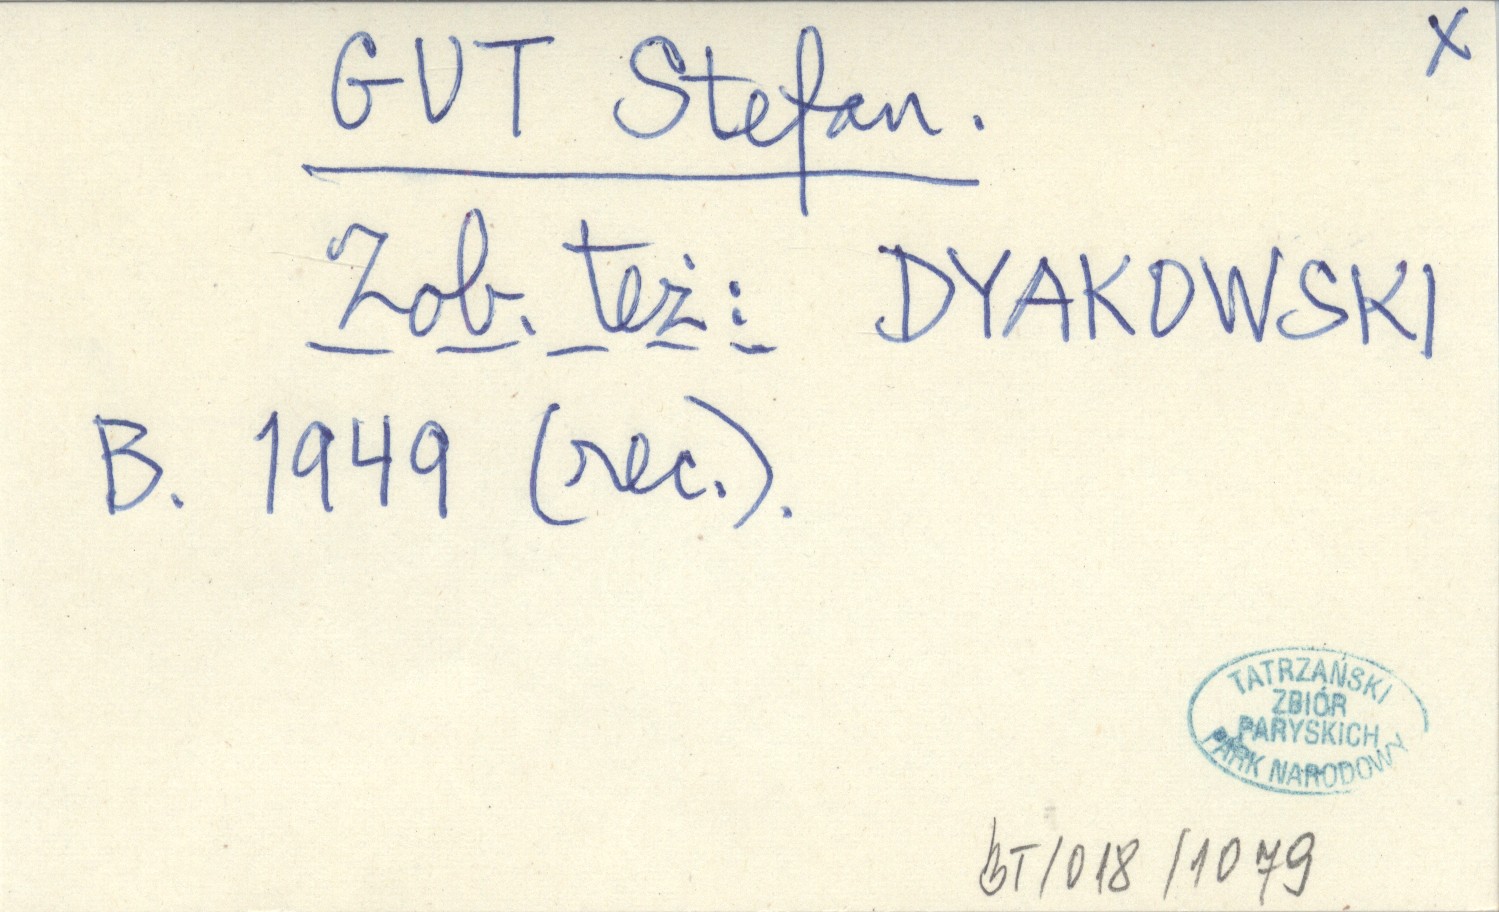 X
GUT Stefan.
Zob. też: DYAKOWSKI
B. 1949 (rec.).
TATRZAŃSKI
ZBIÓR
PARYSKICH
PARK NARODOWY
BT/018/1079